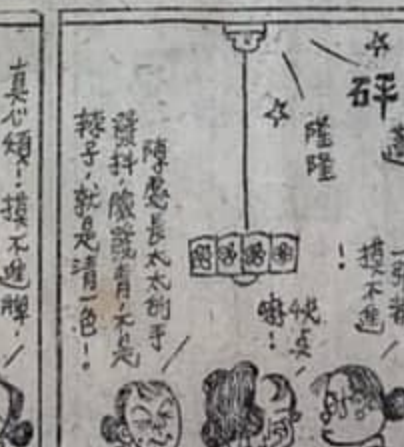 砰
隆隆
摸不進
!
快点
嘛!
陳處長太太的手
發抖,臉發青,不是
辣子,就是清一色!
真心煩!摸不進牌!